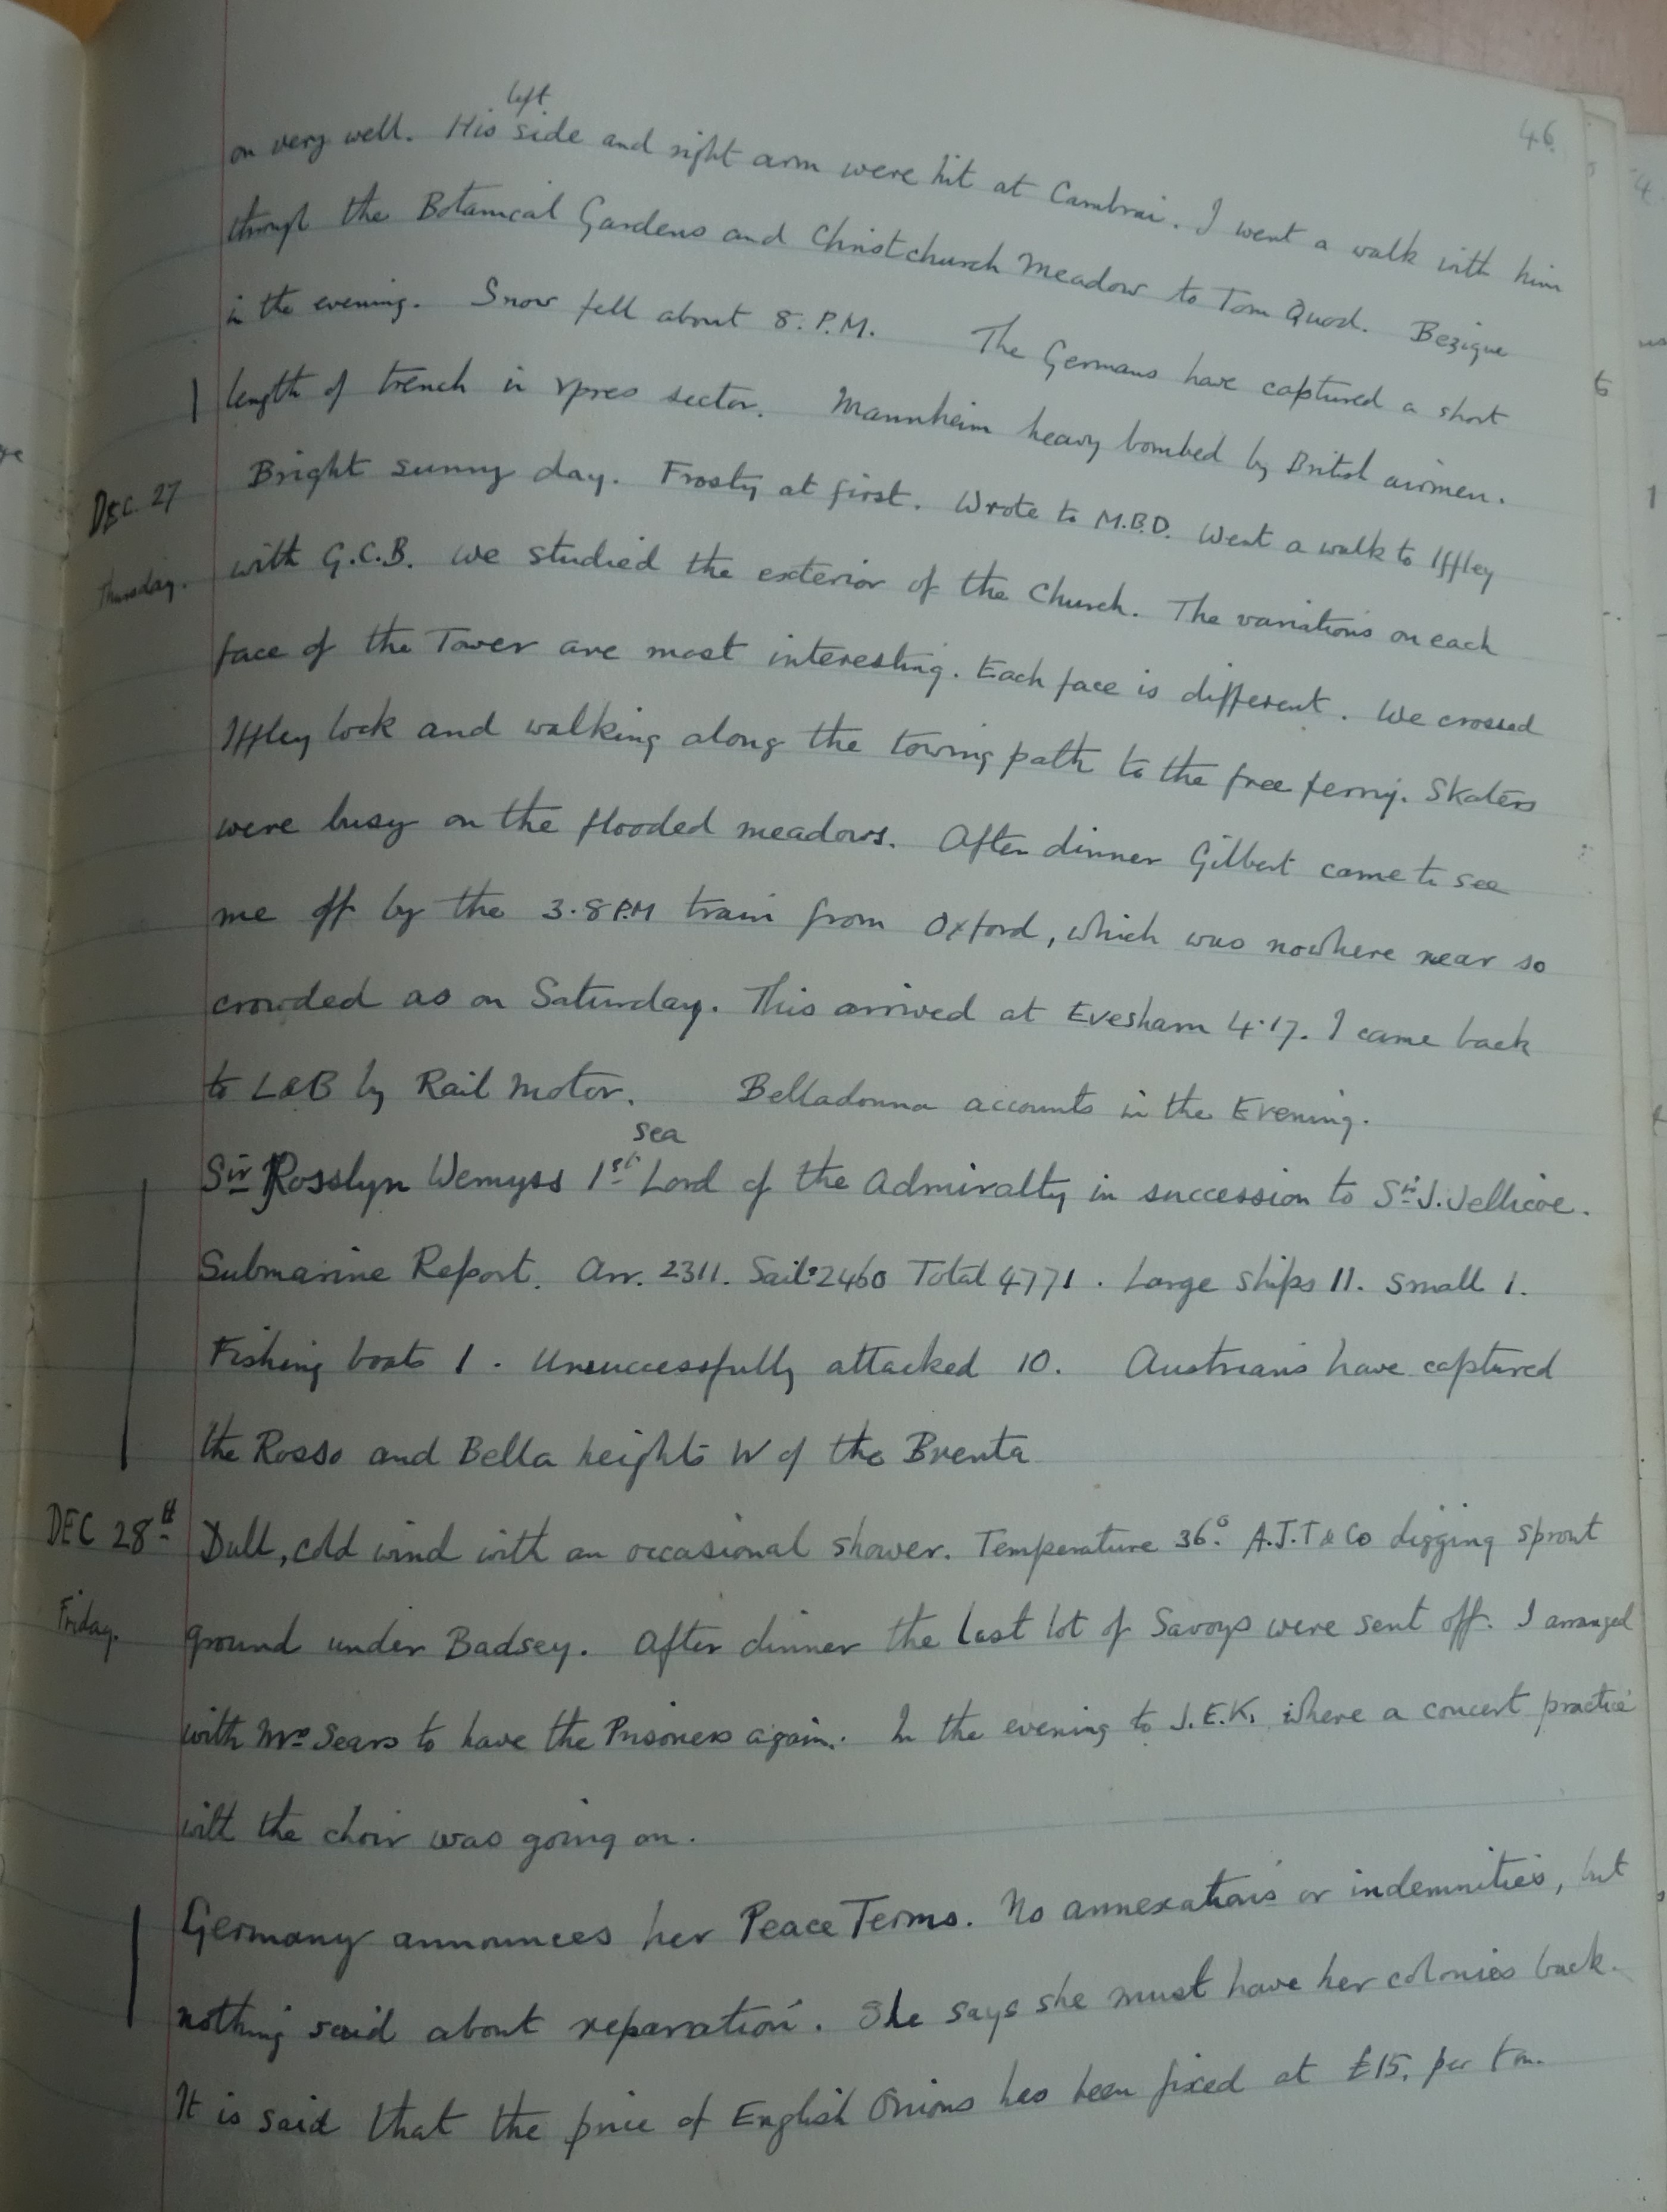 46.
left
on very well. His side and right arm were hit at Cambrai. I went a walk with him
through the Botanical Gardens and Christchurch Meadow to Tom Quad. Bezique
in the evening. Snow fell about 8. P.M. The Germans have captured a short
length of trench in Ypres sector. Mannheim heavy bombed by British airmen.
Dec. 27 Bright sunny day. Frosty at first. Wrote to M.B.D. Went a walk to Iffley
Thursday. with G.C.B. We studied the exterior of the Church. The variations on each
face of the Tower are most interesting. Each face is different. We crossed
Iffley lock and walking along the towing path to the free ferry. Skaters
were busy on the flooded meadows. After dinner Gilbert came to see
me off by the 3.8 P.M train from Oxford, which was nowhere near so
crowded as on Saturday. This arrived at Evesham 4.17. I came back
to L&B by Rail Motor. Belladonna accounts in the Evening.
sea
Sir Rosslyn Wemyss 1st Lord of the Admiralty in succession to Sir J. Jellicoe.
Submarine Report. Arr. 2311. Sail: 2460 Total 4771. Large ships 11. Small 1.
Fishing boats 1. Unsuccessfully attacked 10. Austrians have captured
the Rosso and Bella heights W of the Brenta
DEC 28th Dull, cold wind with an occasional shower. Temperature 36°. A.J.T & Co digging sprout
Friday. ground under Badsey. After dinner the last lot of Savoys were sent off. I arranged
with Mrs Sears to have the Prisoners again. In the evening to J.E.K. where a concert practice
with the choir was going on.
Germany announces her Peace Terms. No annexations or indemnities, but
nothing said about reparation. She says she must have her colonies back.
It is said that the price of English Onions has been fixed at £15. per ton.